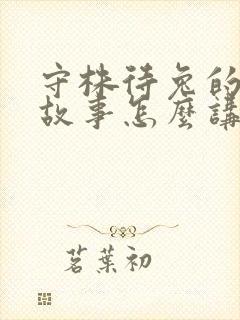 守株待兔的
故事怎麼講
茗葉初